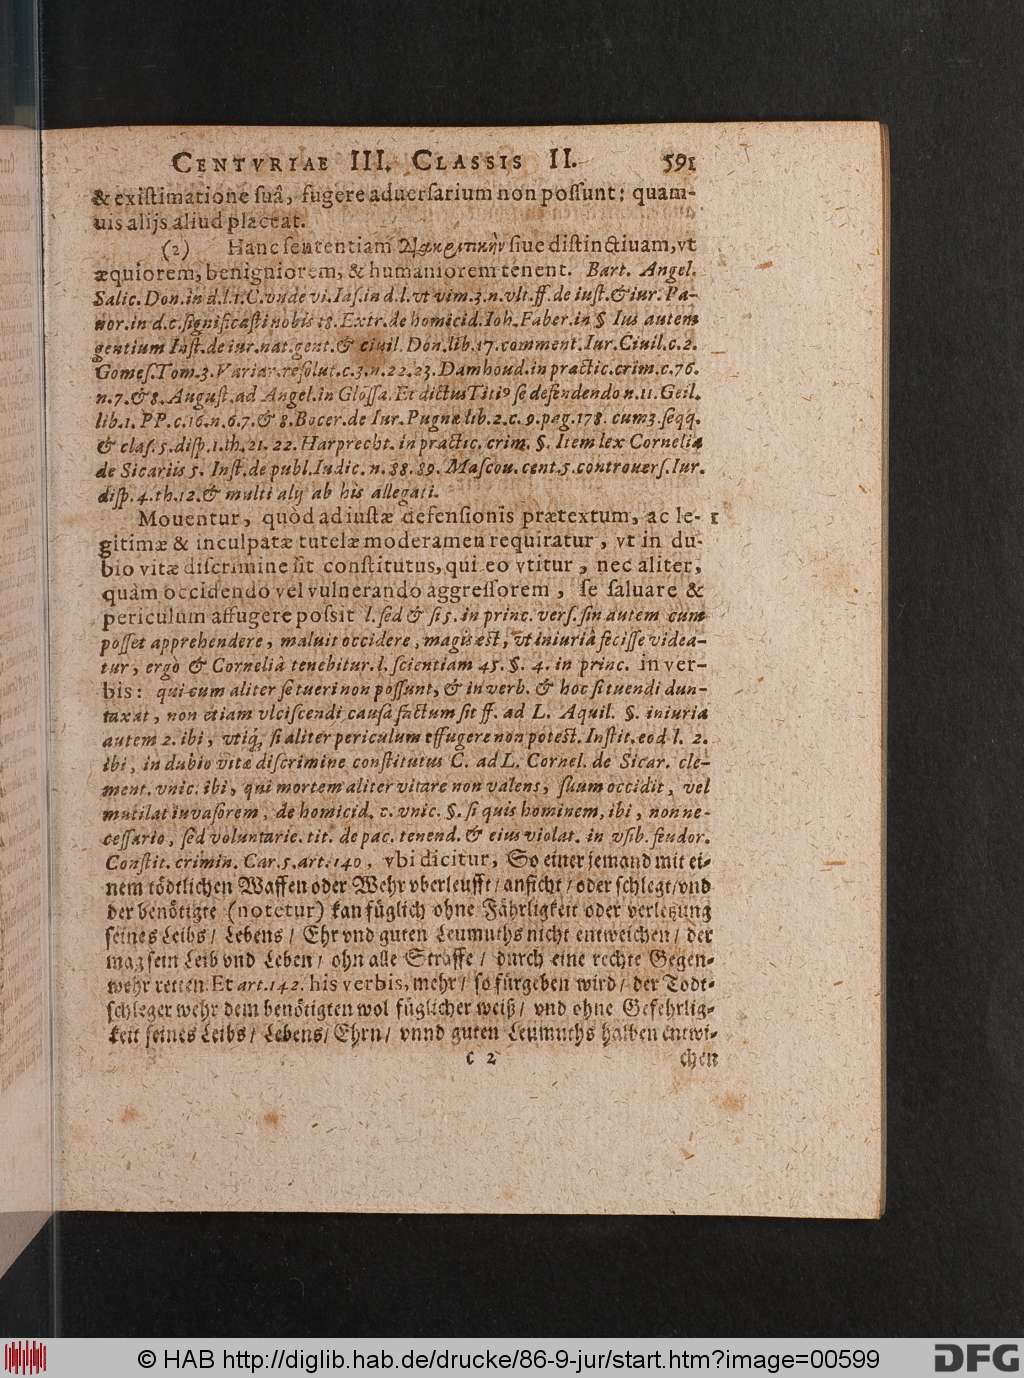 CENTVRIAE III. CLASSIS II. 591
& existimatione suâ, fugere aduersarium non possunt: quam-
uis alijs aliud placeat.
(2) Hanc sententiam διακριτικὴν siue distinctiuam, vt
æquiorem, benigniorem, & humaniorem tenent. Bart. Angel.
Salic. Don. in d.l.1. C. vnde vi. Ias. in d.l. vt vim. 3. n. vlt. ff. de iust. & iur. Pa-
nor. in d.c. significasti nobis 18. Extr. de homicid. Ioh. Faber. in § Ius autem
gentium Inst. de iur. nat. gent. & ciuil. Don. lib. 17. comment. Iur. Ciuil. c. 2.
Gomes. Tom. 3. Variar. resolut. c. 3. n. 22. 23. Damhoud. in practic. crim. c. 76.
n. 7. & 8. August. ad Angel. in Glossa. Et dictus Titiꝰ se defendendo n. 11. Geil.
lib. 1. PP. c. 16. n. 6. 7. & 8. Bocer. de Iur. Pugnæ lib. 2. c. 9. pag. 178. cum 3. seqq.
& clas. 5. disp. 1. th. 21. 22. Harprecht. in practic. crim. §. Item lex Cornelia
de Sicariis 5. Inst. de publ. Iudic. n. 38. 39. Mascou. cent. 5. controuers. Iur.
disp. 4. th. 12. & multi alij ab his allegati.
Mouentur, quòd ad iustæ defensionis prætextum, ac le- 1
gitimæ & inculpatæ tutelæ moderamen requiratur, vt in du-
bio vitæ discrimine sit constitutus, qui eo vtitur, nec aliter,
quàm occidendo vel vulnerando aggressorem, se saluare &
periculum affugere possit l. sed & si 5. in princ. vers. sin autem cum
posset apprehendere, maluit occidere, magis est, vt iniuriâ fecisse videa-
tur, ergò & Corneliâ tenebitur. l. scientiam 45. §. 4. in princ. in ver-
bis: qui cum aliter se tueri non possunt, & in verb. & hoc si tuendi dun-
taxat, non etiam vlciscendi causâ factum sit ff. ad L. Aquil. §. iniuria
autem 2. ibi, vtiq́; si aliter periculum effugere non potest. Instit. eod l. 2.
ibi, in dubio vitæ discrimine constitutus C. ad L. Cornel. de Sicar. cle-
ment. vnic. ibi, qui mortem aliter vitare non valens, suum occidit, vel
mutilat inuasorem, de homicid. c. vnic. §. si quis hominem, ibi, non ne-
cessario, sed voluntarie. tit. de pac. tenend. & eius violat. in vsib. feudor.
Constit. crimin. Car. 5. art. 140, vbi dicitur, So einer jemand mit ei-
nem tödtlichen Waffen oder Wehr vberleufft/ anficht/ oder schlegt/ vnd
der benötigte (notetur) kan füglich ohne Fährligkeit oder verletzung
seines Leibs/ Lebens/ Ehr vnd guten Leumuths nicht entweichen/ der
mag sein Leib vnd Leben/ ohn alle Straffe/ durch eine rechte Gegen-
wehr retten. Et art. 142. his verbis, mehr/ so fürgeben wird/ der Todt-
schleger wehr dem benötigten wol füglicher weiß/ vnd ohne Gefehrlig-
keit seines Leibs/ Lebens/ Ehrn/ vnnd guten Leumuths halben entwi-
c 2 chen
© HAB http://diglib.hab.de/drucke/86-9-jur/start.htm?image=00599 DFG